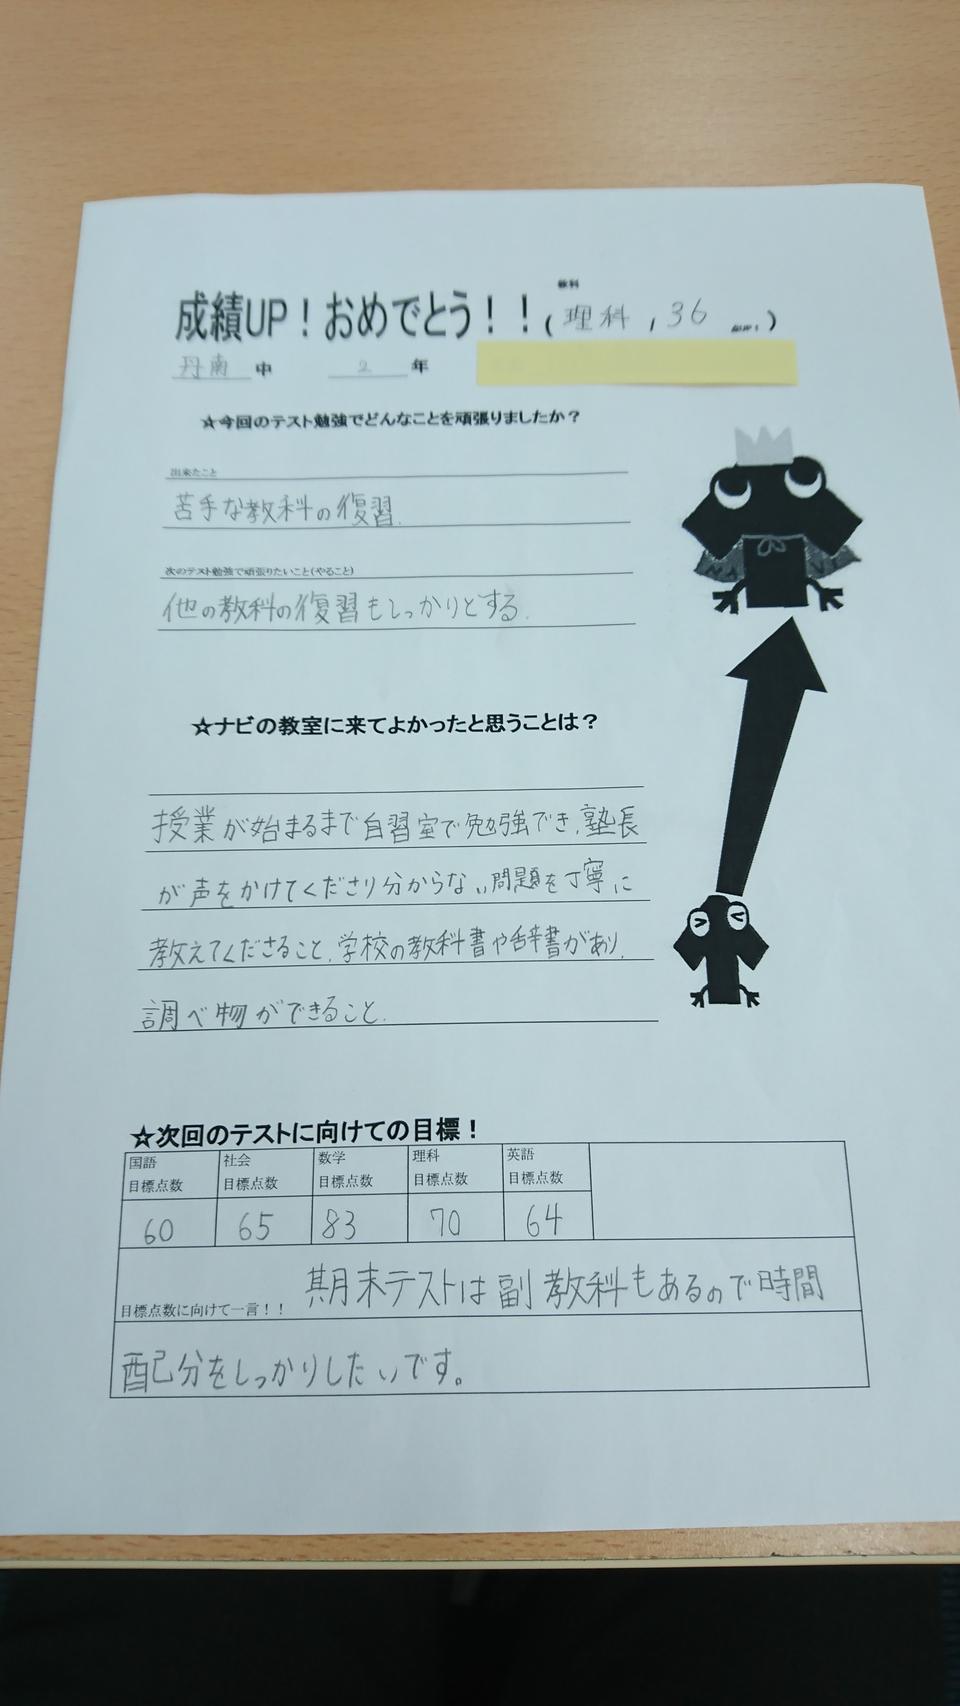 教科
成績UP！おめでとう！！(理科，36 点UP！)
丹南中 2年
☆今回のテスト勉強でどんなことを頑張りましたか？
出来たこと
苦手な教科の復習.
次のテスト勉強で頑張りたいこと(やること)
他の教科の復習もしっかりとする.
☆ナビの教室に来てよかったと思うことは？
授業が始まるまで自習室で勉強でき,塾長
が声をかけてくださり分からない問題を丁寧に
教えてくださること.学校の教科書や辞書があり,
調べ物ができること.
☆次回のテストに向けての目標！
国語 社会 数学 理科 英語
目標点数 目標点数 目標点数 目標点数 目標点数
60 65 83 70 64
目標点数に向けて一言！！ 期末テストは副教科もあるので時間
配分をしっかりしたいです。